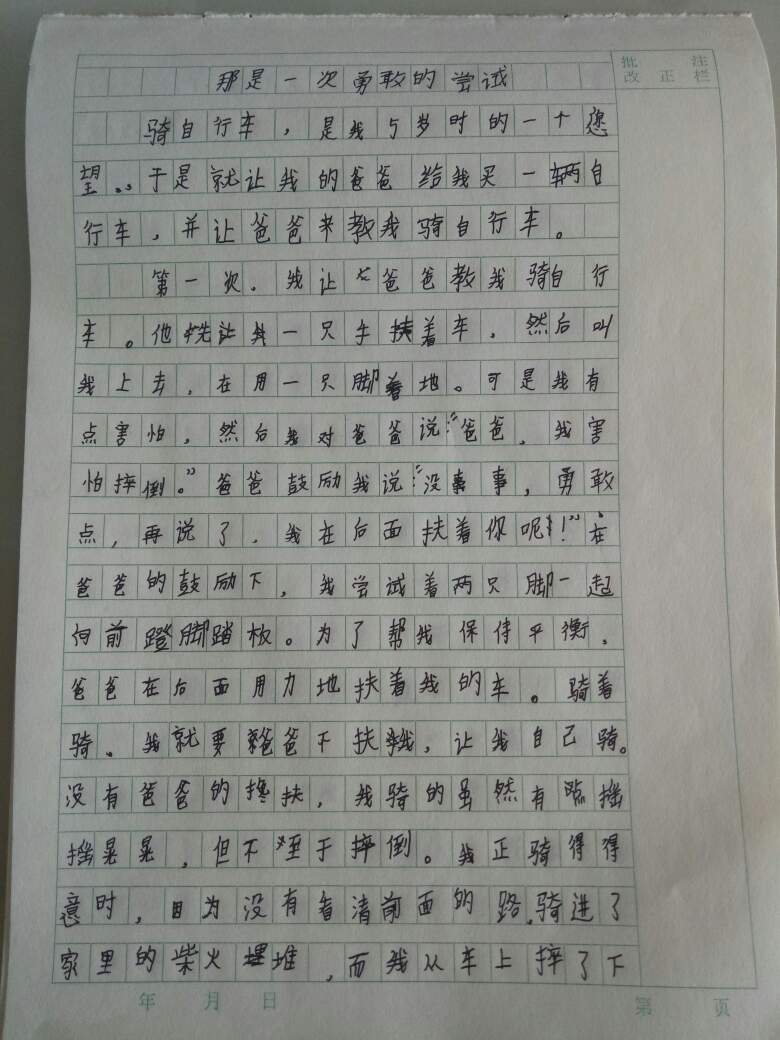 那是一次勇敢的尝试
批 注
改正栏
骑自行车，是我5岁时的一个愿
望。于是就让我的爸爸给我买一辆自
行车，并让爸爸来教我骑自行车。
第一次，我让爸爸教我骑自行
车。他先让我一只手扶着车，然后叫
我上去，在用一只脚着地。可是我有
点害怕，然后我对爸爸说：“爸爸，我害
怕摔倒。”爸爸鼓励我说：“没事事，勇敢
点，再说了，我在后面扶着你呢！”在
爸爸的鼓励下，我尝试着两只脚一起
向前蹬脚踏板。为了帮我保侍平衡，
爸爸在后面用力地扶着我的车。骑着
骑、我就要爸爸不扶我，让我自己骑。
没有爸爸的搀扶，我骑的虽然有点摇
摇晃晃，但不至于摔倒。我正骑得得
意时，因为没有看清前面的路，骑进了
家里的柴火堆，而我从车上摔了下
年 月 日
第 页